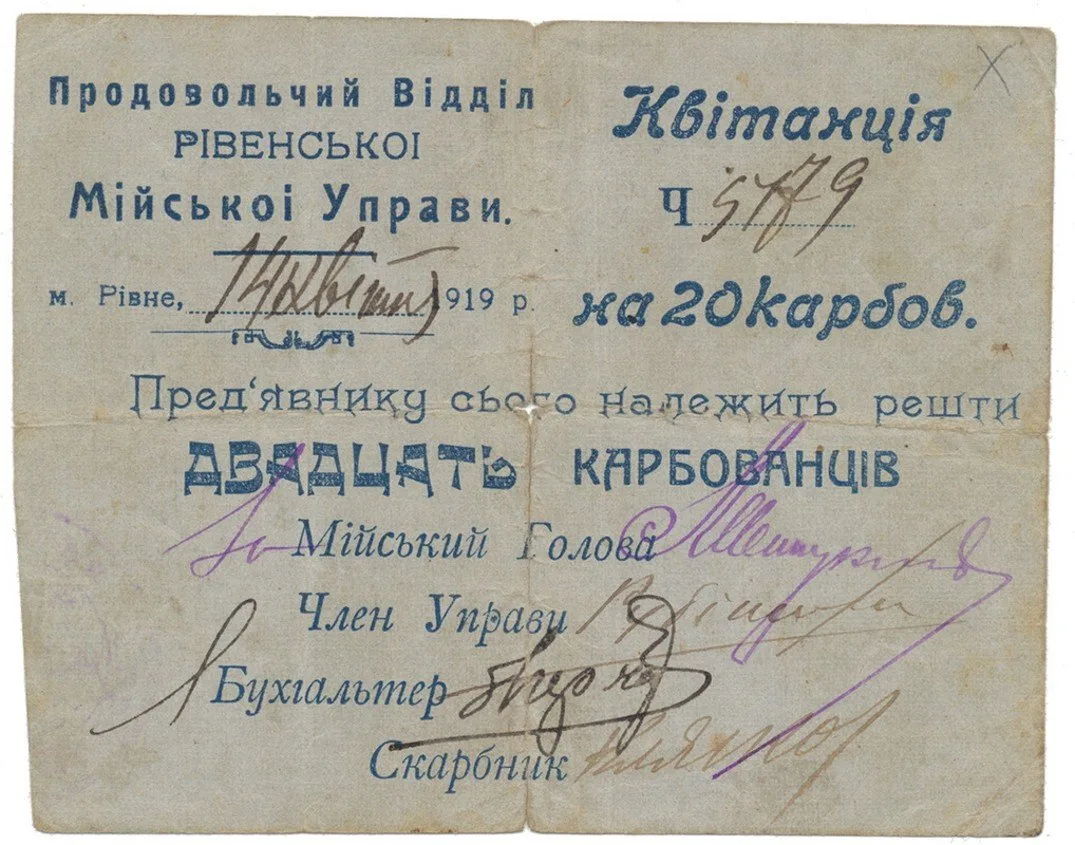 Продовольчий Відділ
РІВЕНСЬКОІ
Мійськоі Управи.
м. Рівне, 14 квітня 1919 р.
Квітанція
Ч 5179
на 20 карбов.
Пред‘явнику сього належить решти
ДВАДЦАТЬ КАРБОВАНЦІВ
Мійський Голова
Член Управи
Бухгальтер
Скарбник